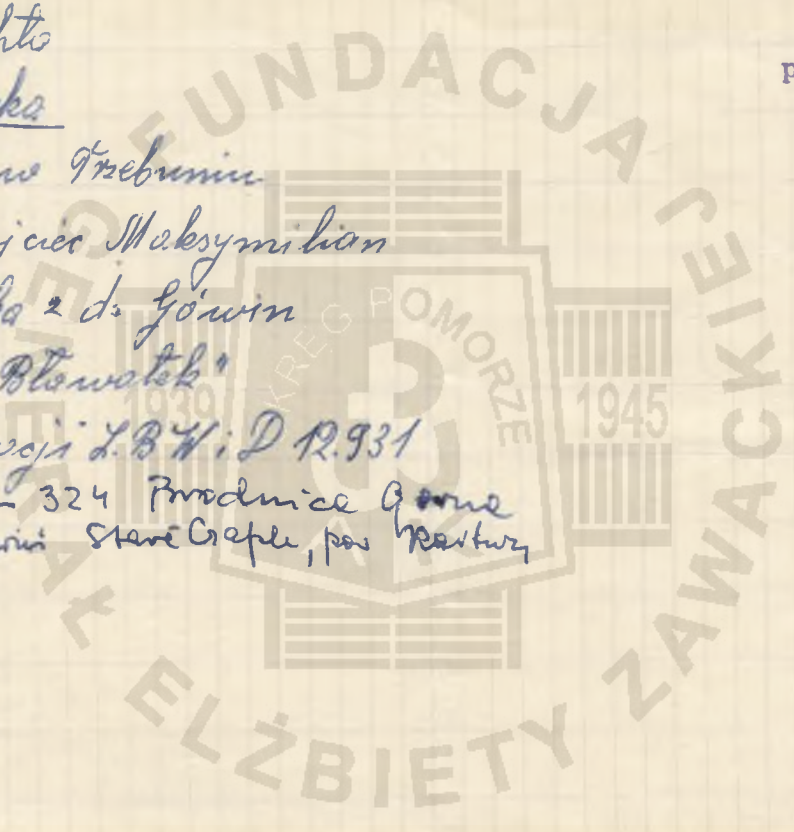 w Trzebuniu
Maksymilian
z d. Górwin
"Bławatek"
Z.B.W.i D 12.931
324 Brodnica Górna
Stare Czaple, pow Kartuzy
FUNDACJA
GENERAŁ ELŻBIETY ZAWACKIEJ
OKRĘG POMORZE
1939
1945
AK
p